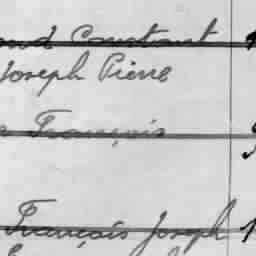 Constant
Joseph Pierre
François
François Joseph